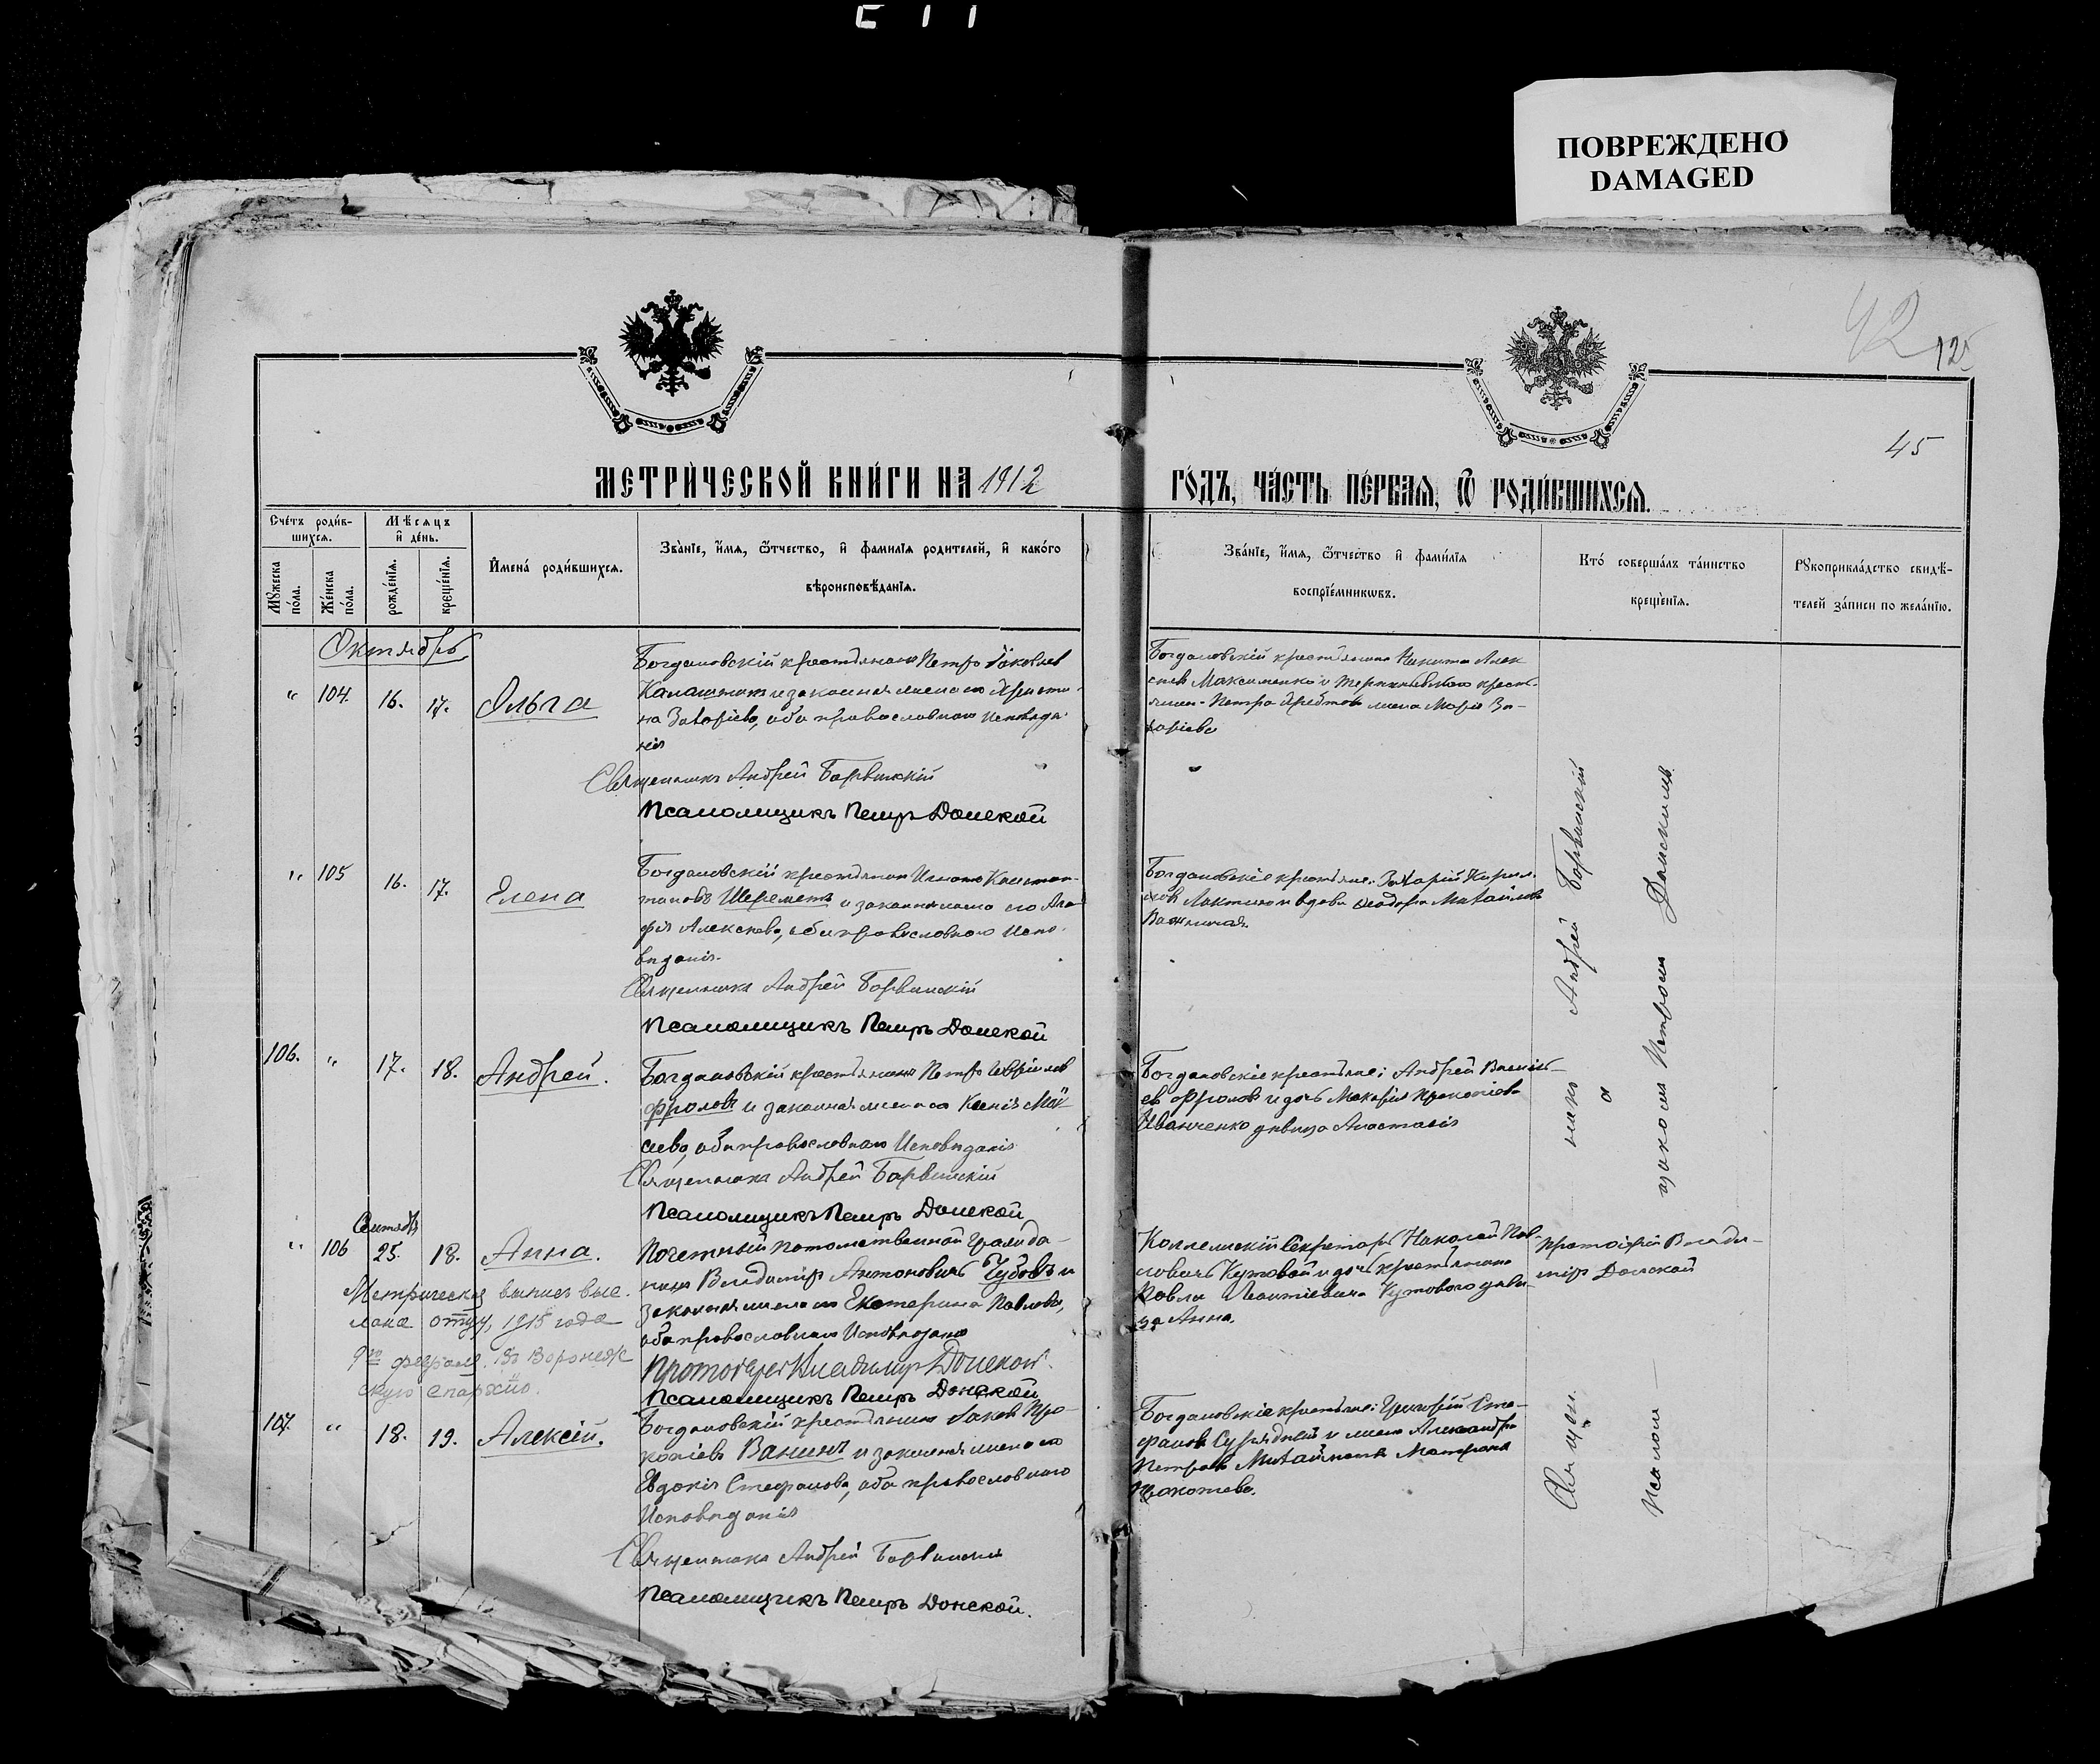 ПОВРЕЖДЕНО
DAMAGED
42
125
45
МЕТРИ́ЧЕСКОЙ КНИ́ГИ НА 1912
ГО́ДЪ, ЧА́СТЬ ПЕ́РВАЯ, Ѽ РОДИ́ВШИХСЯ.
Сче́тъ роди́в-
шихся.
Мѣ́сяцъ
и҆ де́нь.
Мꙋ́жеска по́ла.
Же́нска по́ла.
рожде́нїя.
креще́нїя.
И҆мена̀ роди́вшихся.
Зва́нїе, и҆́мя, ѻ҆́тчество, и҆ фами́лїя роди́телей, и҆ како́го
вѣроисповѣ́данїя.
Зва́нїе, и҆́мя, ѻ҆́тчество и҆ фами́лїя
воспрїе́мникѡвъ.
Кто́ соверша́лъ та́инство
креще́нїя.
Рꙋкоприкла́дство свидѣ́-
телей за́писи по жела́нїю.
Октябрь
" 104. 16. 17. Ольга
Богдановскій крестьянинъ Петръ Яковлев
и законная жена его Христи-
на Захаріева, оба православнаго исповѣда-
нія
Священникъ Андрей Борвинскій
Псаломщикъ Петръ Донской
Богдановскій крестьянинъ Никита Алек
сѣев Максименко и крест.
жена Марія За-
харіева
" 105 16. 17. Елена
Богдановскій крестьянин Игнатъ Констан-
тиновъ Шереметъ и законная жена его Ага
фія Алексѣева, оба православнаго испо-
вѣданія.
Священникъ Андрей Борвинскій
Псаломщикъ Петръ Донской
Богдановскіе крестьяне: Захарій Кирил-
лов и вдова Ѳеодора Михайлова
106. " 17. 18. Андрей.
Богдановскій крестьянинъ Петръ Гавріилов
Фроловъ и законная жена его Ксенія Мои
сеева, оба православнаго исповѣданія
Священникъ Андрей Борвинскій
Псаломщикъ Петръ Донской
Богдановскіе крестьяне: Андрей Василь-
ев Фролов и дочь Макарія Прокопіева
Иванченко дѣвица Анастасія
Сентябр
" 106 25. 18. Анна.
Метрическая выпись выс.
лана отцу, 1915 года
9го февраля. Въ Воронеж
скую епархію.
Почетный потомственной гражда-
нинъ Владиміръ Антоновичъ Чубовъ и
законная жена его Екатерина Павлова,
оба православнаго исповѣданія
Протоіерей Владимиръ Донской.
Псаломщикъ Петръ Донской
Коллежскій Секретарь Николай Пав-
ловичъ Кутовой и дочь крестьянина
Павла Леонтіевича Кутового дѣви-
ца Анна.
Протоіерей Влади-
міръ Донской
107. " 18. 19. Алексій.
Богдановскій крестьянинъ Яковъ Про-
копіевъ Ванинъ и законная жена его
Евдокія Стефанова, оба православнаго
исповѣданія
Священникъ Андрей Борвинскій
Псаломщикъ Петръ Донской.
Богдановскіе крестьяне: Григорій Сте-
фанов и жена Александра
Петрова Матрона
Священ.
никъ Андрей Борвинскій
и
Псалом
щикомъ Петромъ Донскимъ